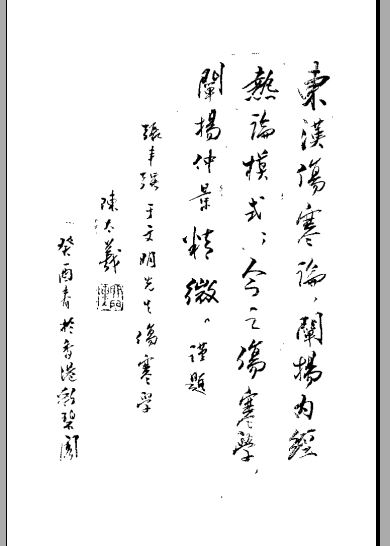 東漢傷寒論，闡揚內經
熱論模式；今之傷寒學，
闡揚仲景精微。謹題
張丰强于文明先生傷寒學
陳太羲
癸酉春於香港